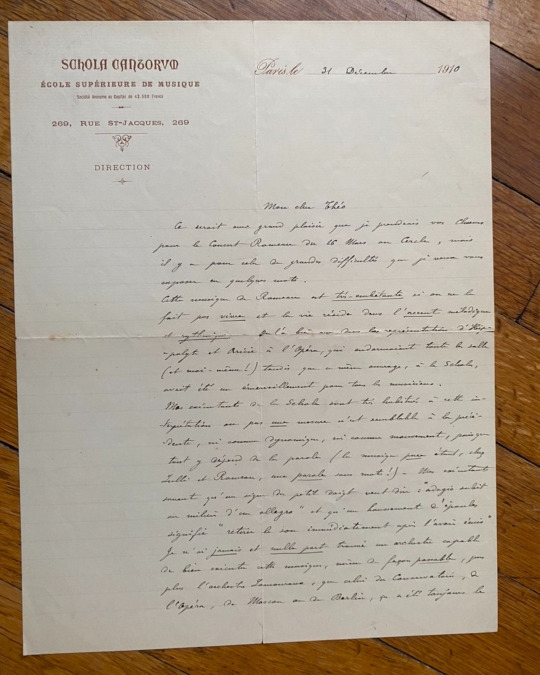 SCHOLA CANTORVM
ÉCOLE SUPÉRIEURE DE MUSIQUE
Société Anonyme au Capital de Francs
269, RUE ST-JACQUES, 269
DIRECTION
Paris, le 31 Décembre 1910
Mon cher Théo
Ce serait avec grand plaisir que je prendrais vos Chœurs
pour le Concert Rameau du 16 Mars au Cercle, mais
il y a pour cela de grandes difficultés que je veux vous
exposer en quelques mots.
Cette musique de Rameau est très-embêtante si on ne la
fait pas vivre et la vie réside dans l'accent mélodique
et rythmique. On l'a bien vu dans les représentations d'Hip-
-polyte et Aricie à l'Opéra, qui endormaient toute la salle
(et moi-même!) tandis que ce même ouvrage, à la Schola,
avait été un émerveillement pour tous les musiciens.
Mes exécutants de la Schola sont très habitués à cette in-
terprétation où pas une mesure n'est semblable à la précé-
dente, ni comme dynamique, ni comme mouvement, puisque
tout y dépend de la parole (la musique pure étant, chez
Lulli et Rameau, une parole sans mots!) - Mes exécutants
savent qu'un signe du petit doigt veut dire: "adagio subit
au milieu d'un allegro" et qu'un haussement d'épaules
signifie "retirez le son immédiatement après l'avoir émis"
Je n'ai jamais et nulle part trouvé un orchestre capable
de bien exécuter cette musique, même de façon passable, pas
plus l'orchestre Lamoureux, que celui du Conservatoire, de
l'Opéra, de Moscou ou de Berlin, ç'a été toujours la